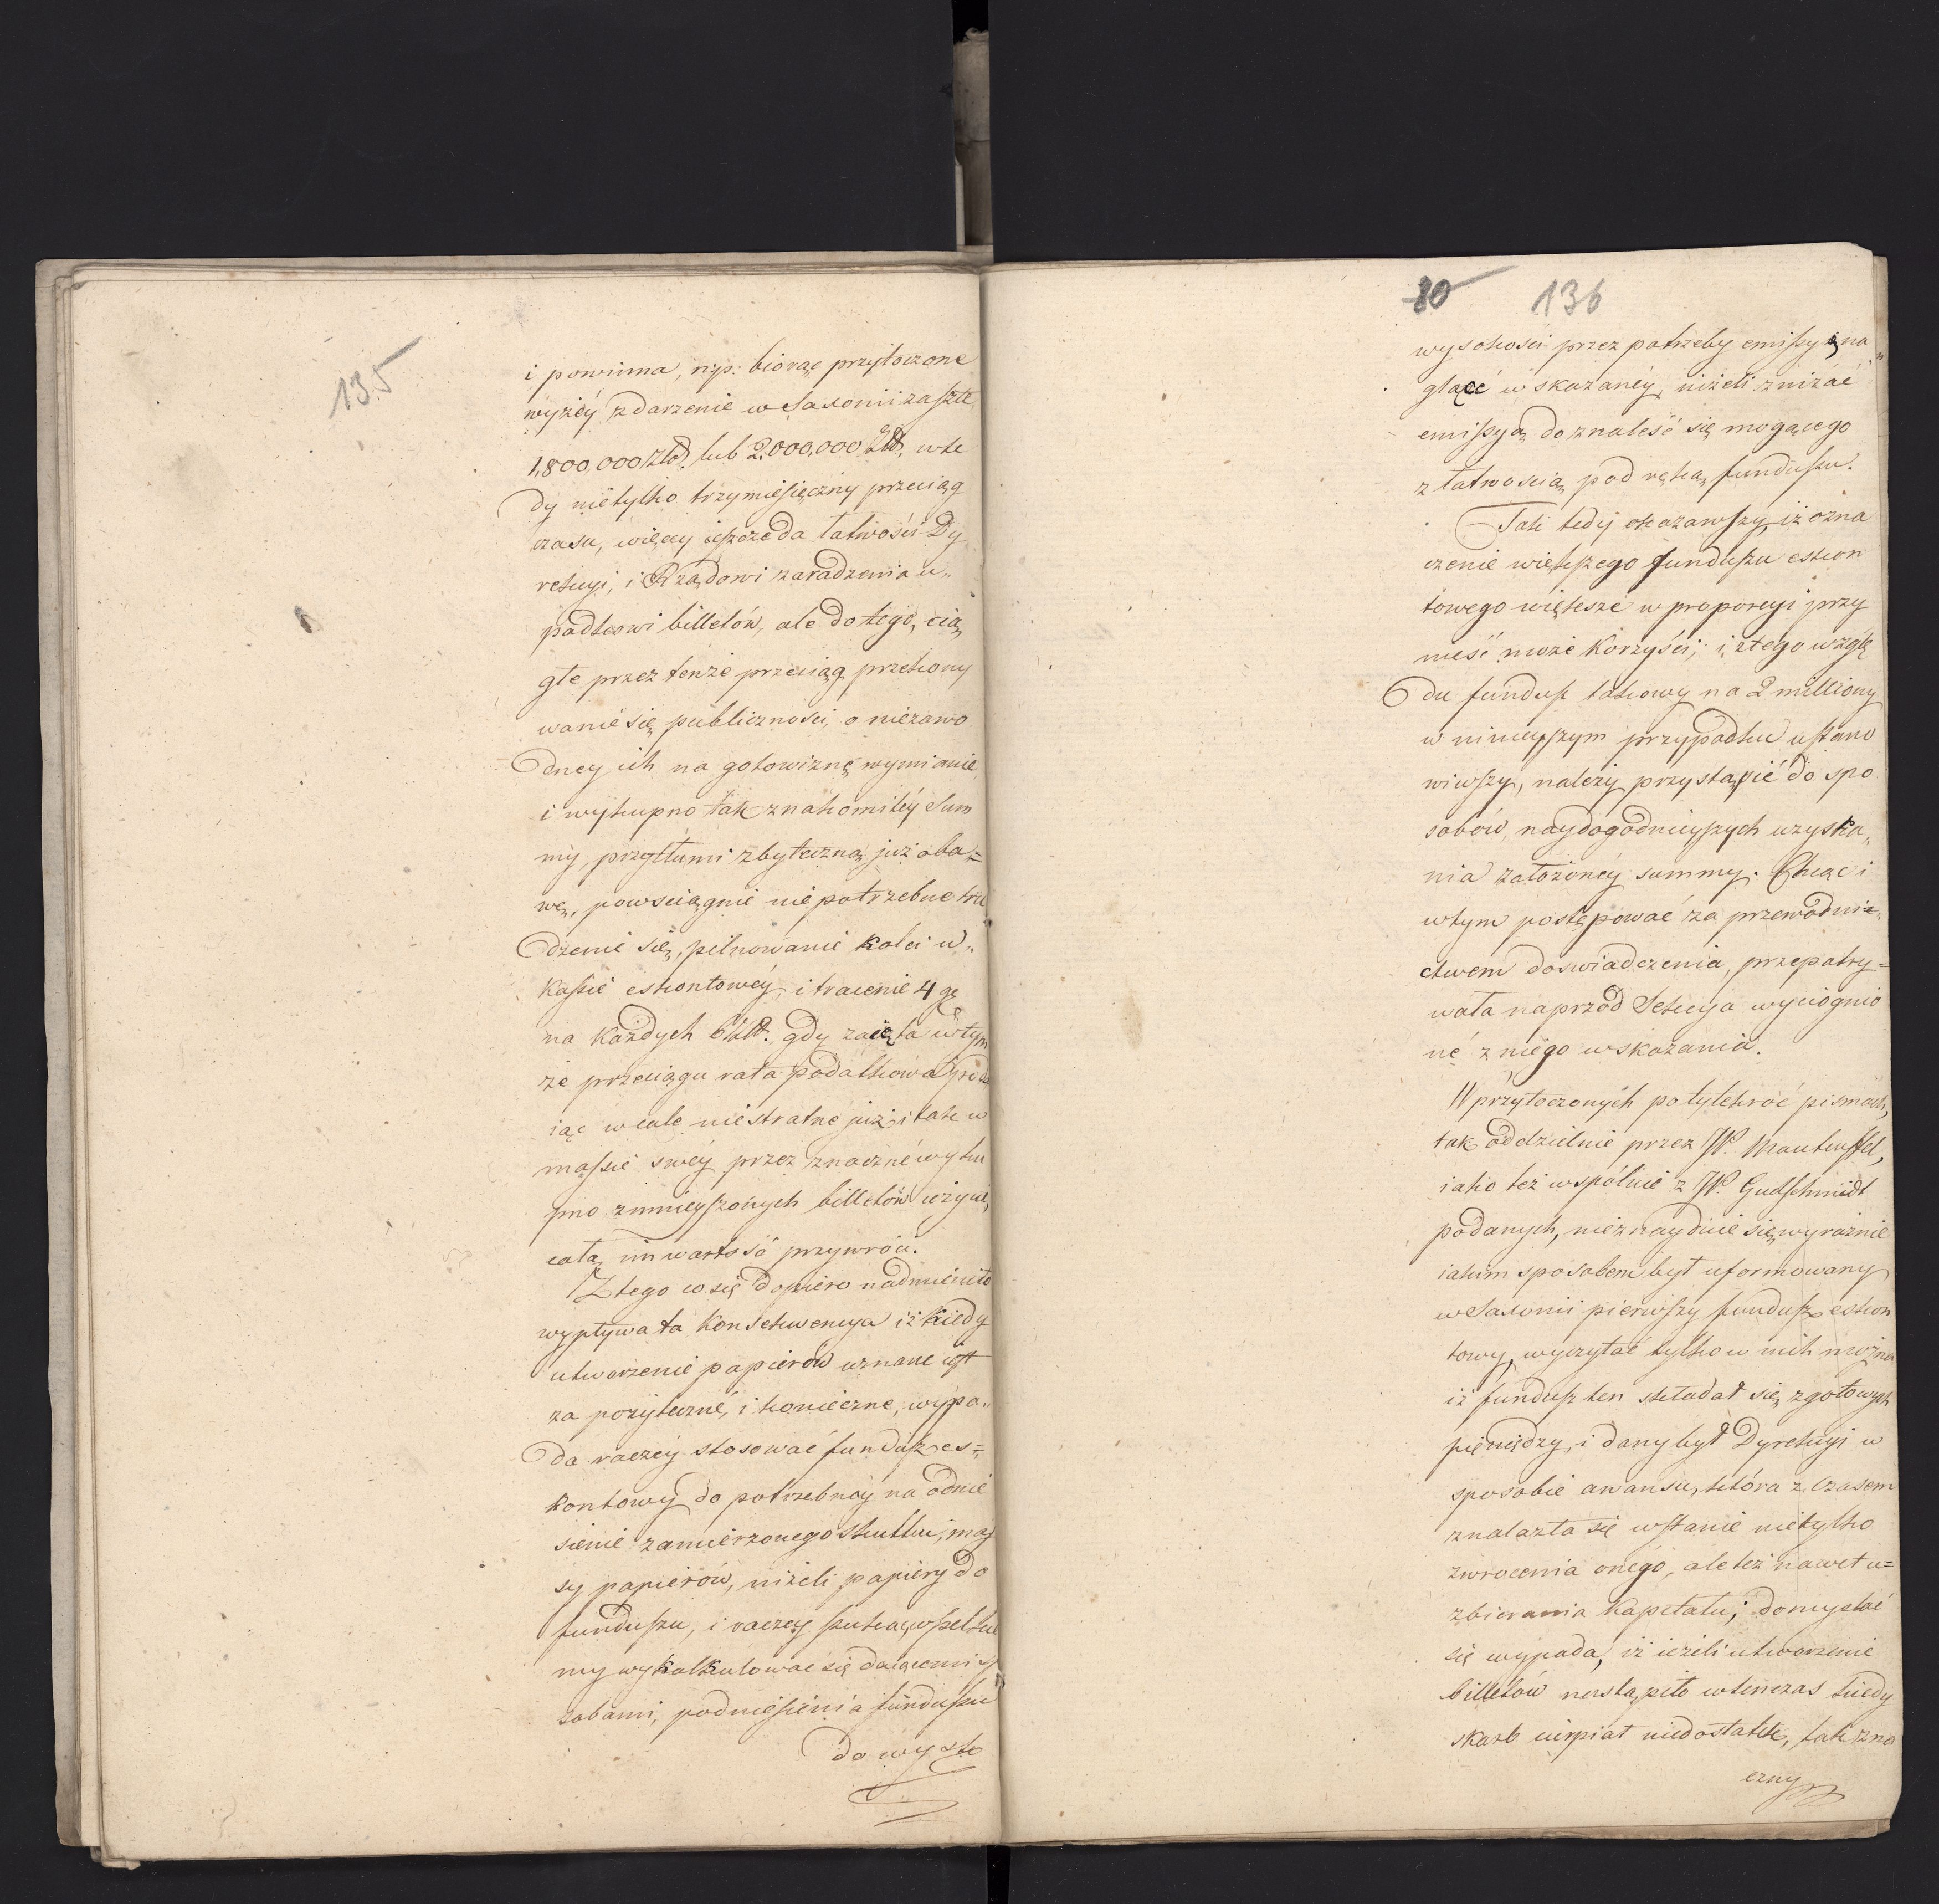 135
i powinna, np. biorąc przytoczone
wyżéy zdarzenie w Saxonii zaszłe
1,800,000 złł. lub 2,000,000 Złł. wte
dy nietylko trzymiesięczny przeciąg
czasu, więcéy ieszcze da łatwości Dy
rekcyi, i Rządowi zaradzenia u„
padkowi billetów, ale do tego, cią
głe przez tenże przeciąg przekony
wanie się publiczności, o niezawo
dney ich na gotowiznę wymianie
i wykupno tak znakomitéy Sum
my, przytłumi zbyteczną już oba=
wę, powściągnie niepotrzebne tru
dzenie się, pilnowanie kolei w„
kassie eskontowéy, i tracenie 4 gr
na każdych 6 Złł. gdy zaięta w tym
że przeciągu rata podatkowa
iąc wcale niestratne już i tak w
massie swéy przez znaczné wyku
pno zmnieyszonych billetów użycie,
całą im wartość przywróci.
Z tego co się dopiero nadmieniło
wypływa ta Konsekwencya iż kiedy
utworzenie papierów uznane iest
za pożyteczné, i konieczne, wypa„
da raczéy stosować fundusz es=
kontowy do potrzebnéy na odnie
sienie zamierzonego skutku, mas
sy papierów, niżeli papiery do
funduszu, i raczéy
my wykalkulować się daiącemi
sobami, podniesienia funduszu
do wyso
80 136
wysokości przez potrzeby emissyą na
glące wskazanéy, niżeli zniżać
emissyą do znaleść się mogącego
z łatwością pod ręką funduszu.
Tak tedy okazawszy, iż ozna
czenie większego funduszu eskon
towego większe w proporcyi przy
nieść może Korzyści; i z tego wzglę
du fundusz takowy na 2 milliony
w ninieyszym przypadku ustano
wiwszy, należy przystąpić do spo
sobów, naydogodnieyszych uzyska„
nia założonéy summy. Chcąc i
w tym postępować za przewodni„
ctwem doświadczenia, przepatry=
wała naprzód Sekcya wyciągnio
né z niego wskazania.
W przytoczonych potylekroć pismach,
tak oddzielnie przez JW. Manteuffel,
iako też wspólnie z JW. Gudschmidt
podanych, nieznayduie się wyraźnie
iakim sposobem był uformowany
w Saxonii pierwszy fundusz eskon
towy, wyczytać tylko w nich można
iż fundusz ten składał się z gotowych
pieniędzy, i dany był Dyrekcyi w
sposobie awansu, która z czasem
znalazła się w stanie nietylko
zwrocenia onégo, ale też nawet u=
zbierania Kapitału; domyślać
się wypada, iż ieżeli utworzenie
billetów nastąpiło wtenczas kiedy
skarb cierpiał niedostatek, tak zna
czny